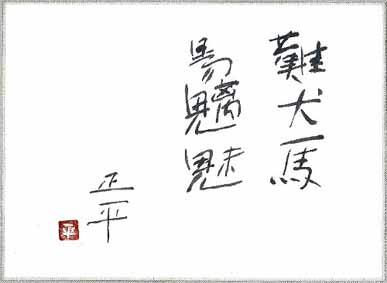 難犬馬
易魑魅
正平